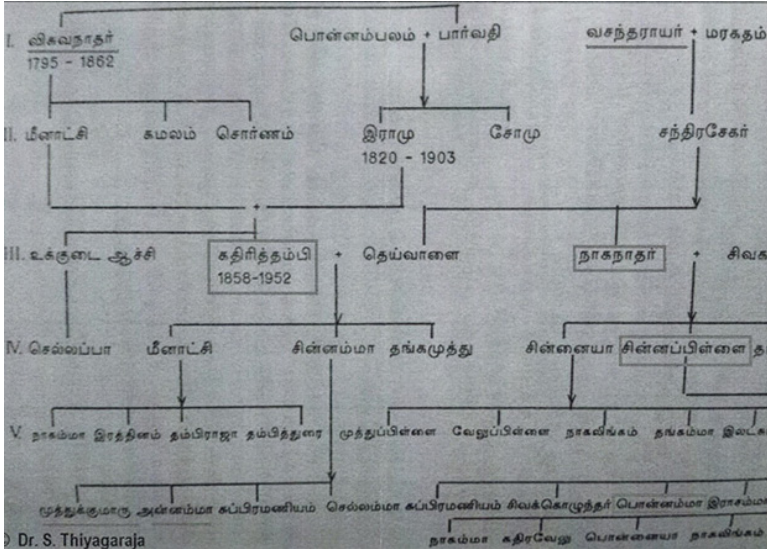 I. விசுவநாதர் பொன்னம்பலம் + பார்வதி வசந்தராயர் + மரகதம்
1795 - 1862
II. மீனாட்சி கமலம் சொர்ணம் இராமு சோமு சந்திரசேகர்
1820 - 1903
+
III. உக்குடை ஆச்சி கதிரித்தம்பி + தெய்வானை நாகநாதர் + சிவக
1858-1952
IV. செல்லப்பா மீனாட்சி சின்னம்மா தங்கமுத்து சின்னையா சின்னப்பிள்ளை த
V. நாகம்மா இரத்தினம் தம்பிராஜா தம்பித்துரை முத்துப்பிள்ளை வேலுப்பிள்ளை நாகலிங்கம் தங்கம்மா இலட்சு
முத்துக்குமாரு அன்னம்மா சுப்பிரமணியம் செல்லம்மா சுப்பிரமணியம் சிவக்கொழுந்தர் பொன்னம்மா இராசம்மா
நாகம்மா கதிரவேலு பொன்னையா நாகலிங்கம்
© Dr. S. Thiyagaraja